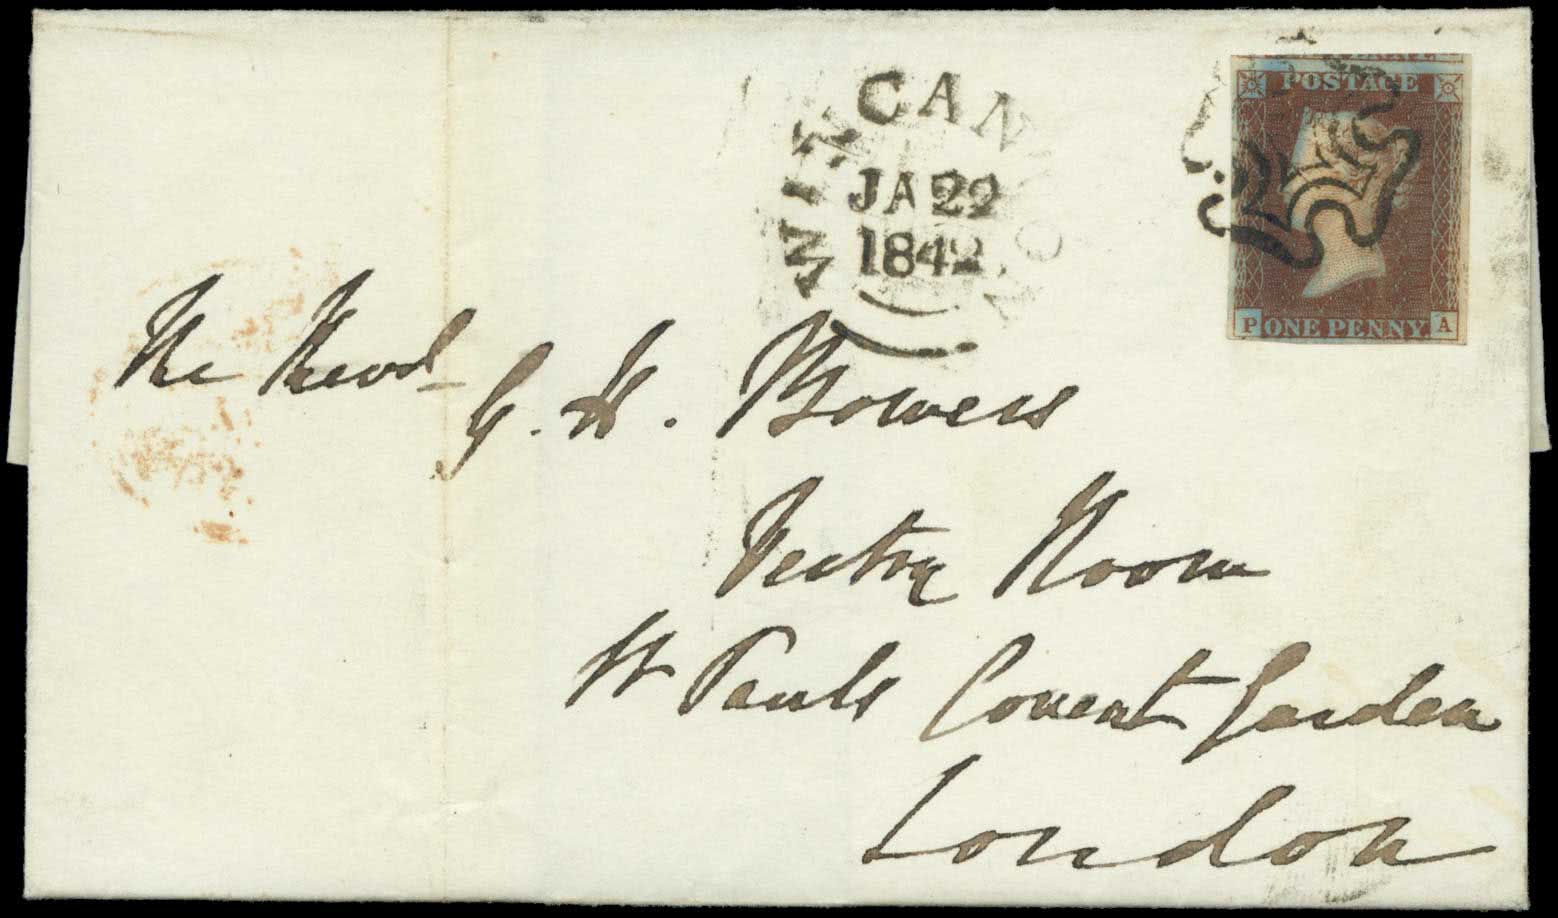 POSTAGE
WINCANTON
JA 22
1842
P ONE PENNY A
The Revd
G. H. Bowers
Vestry Room
St Pauls Covent Garden
London